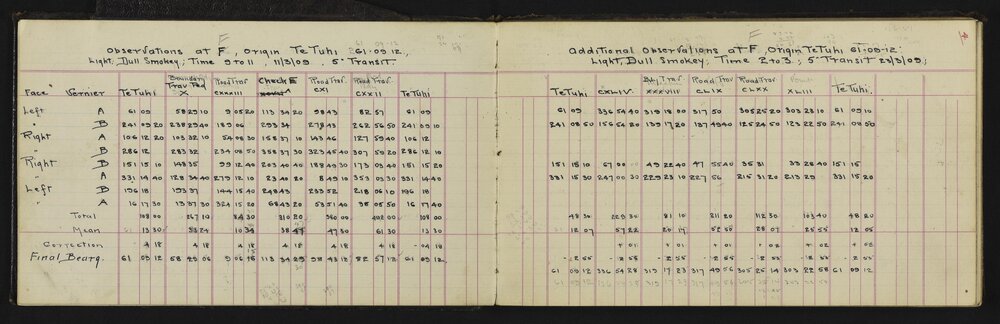 Observations at F, Origin Te Tuhi 61-09-12,
Light, Dull Smokey; Time 9 to 11, 11/3/09, 5" Transit.
Face Vernier Te Tuhi Boundary Trav Peg X Road Trav CXXXIII Check E Road Trav CXI Road Trav CXXII Te Tuhi
Left A 61 09 58 29 10 9 05 20 113 34 20 98 43 82 57 61 09
" B 241 09 20 238 29 40 189 06 293 34 278 43 262 56 50 241 09 10
Right A 106 12 20 103 32 10 54 08 30 158 37 10 143 46 127 59 40 106 12
" B 286 12 283 32 234 08 50 338 37 30 323 45 40 307 59 20 286 12 10
Right B 151 15 10 148 35 99 12 40 203 40 40 188 49 30 173 03 40 151 15 20
" A 331 14 40 128 34 40 279 12 10 23 40 20 8 49 10 353 03 30 331 14 40
Left B 196 18 193 37 144 15 40 248 43 233 52 218 06 10 196 18
" A 16 17 30 13 37 30 324 15 20 68 43 20 53 51 40 38 05 50 16 17 40
Total 108 00 267 10 84 30 310 20 380 00 492 00 108 00
Mean 13 30 33 24 10 34 38 47 47 30 61 30 13 30
Correction 4 18 4 18 4 18 4 18 4 18 4 18 -04 18
Final Bearg. 61 09 12 58 29 06 9 06 16 113 34 29 98 43 12 82 57 12 61 09 12
Additional Observations at F, Origin Te Tuhi 61-09-12
Light, Dull Smokey; Time 2 to 3; 5" Transit 23/3/09;
Te Tuhi CXLIV. Bdy Trav. XXXVIII Road Trav CLIX Road Trav CLXX XLIII Te Tuhi
61 09 336 54 40 319 18 00 317 50 305 25 20 303 23 10 61 09 10
241 08 50 156 54 20 139 17 20 137 49 40 125 24 50 123 22 50 241 08 50
151 15 10 67 00 00 49 22 40 47 55 40 35 31 33 28 40 151 15
331 15 30 247 00 30 229 23 10 227 56 215 31 20 213 29 331 15 20
48 30 229 30 81 10 211 20 112 30 103 40 48 20
12 07 57 22 20 17 52 50 28 07 25 55 12 05
+ 01 + 01 + 01 + 02 + 02 + 03
- 2 55 - 2 55 - 2 55 - 2 55 - 2 55 - 2 55
61 09 12 336 54 28 319 17 23 317 49 56 305 25 14 303 22 58 61 09 12